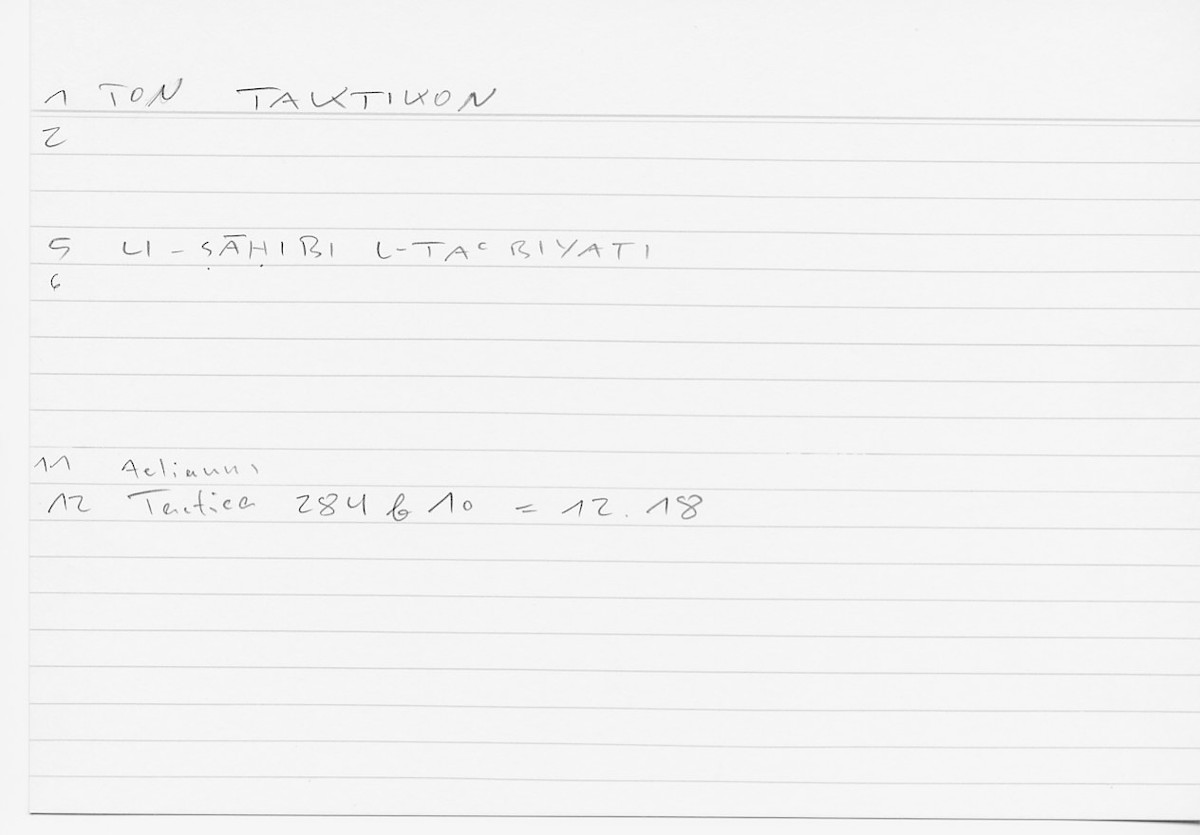 1 TON TAKTIKON
2
5 LI-ṢĀḤIBI L-TAᶜBIYATI
6
11 Aelianus
12 Tactica 284 b 10 = 12.18